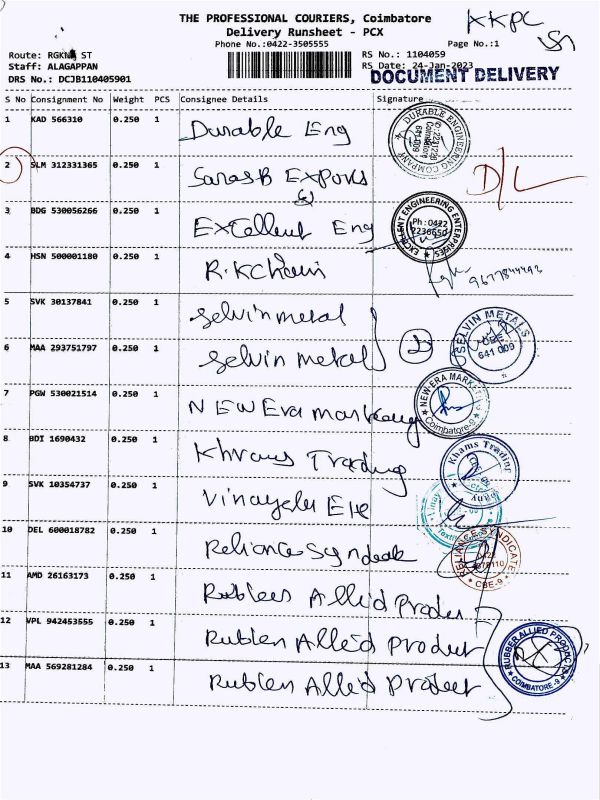 THE PROFESSIONAL COURIERS, Coimbatore
KKPC
Delivery Runsheet - PCX
Phone No.:0422-3505555
Page No.:1
Route: RGKNR ST
RS No.: 1104059
Staff: ALAGAPPAN
RS Date: 24-Jan-2023
DRS No.: DCJB110405901
DOCUMENT DELIVERY
S No Consignment No Weight PCS Consignee Details Signature
1 KAD 566310 0.250 1 Durable Eng
DURABLE ENGINEERING COMPANY Coimbatore 641009
2 SLM 312331365 0.250 1 SarasB Exports D/L
3 BDG 530056266 0.250 1 Excellent Eng
EXCELLENT ENGINEERING ENTERPRISES Ph: 0422 2236650
4 HSN 500001180 0.250 1 9677844493
5 SVK 30137841 0.250 1 Selvin metal
6 MAA 293751797 0.250 1 Selvin metal 2
SELVIN METALS CBE 641 009
7 PGW 530021514 0.250 1 NEW Era marketing
NEW-ERA MARKETING Coimbatore-9
8 BDI 1690432 0.250 1 Khrams Trading
Khams Trading Company
9 SVK 10354737 0.250 1
10 DEL 600018782 0.250 1 Reliance Syndicate
RELIANCE SYNDICATE CBE-9
11 AMD 26163173 0.250 1 Rubber Allied Produ
12 VPL 942453555 0.250 1 Rubber Allied Product
RUBBER ALLIED PRODUCTS COIMBATORE-9
13 MAA 569281284 0.250 1 Rubber Allied Product